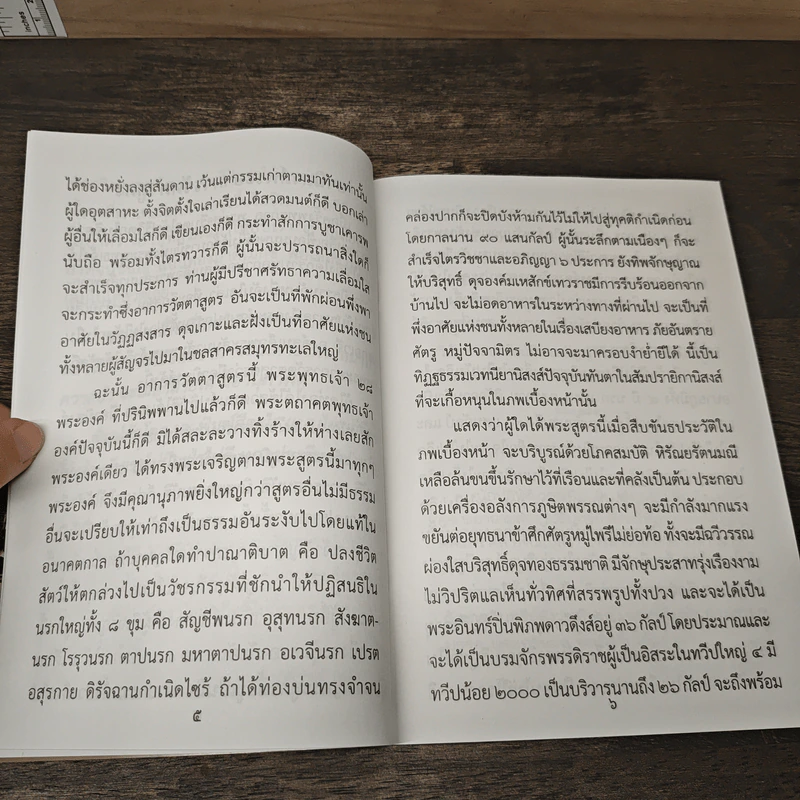 Inches
ได้ช่องหยั่งลงสู่สันดาน เว้นแต่กรรมเก่าตามมาทันเท่านั้น
ผู้ใดอุตสาหะ ตั้งจิตตั้งใจเล่าเรียนได้สวดมนต์ก็ดี บอกเล่า
ผู้อื่นให้เลื่อมใสก็ดี เขียนเองก็ดี กระทำสักการบูชาเคารพ
นับถือ พร้อมทั้งไตรทวารก็ดี ผู้นั้นจะปรารถนาสิ่งใดก็
จะสำเร็จทุกประการ ท่านผู้มีปรีชาศรัทธาความเลื่อมใส
จะกระทำซึ่งอาการวัตตาสูตร อันจะเป็นที่พักผ่อนพึ่งพา
อาศัยในวัฏฏสงสาร ดุจเกาะและฝั่งเป็นที่อาศัยแห่งชน
ทั้งหลายผู้สัญจรไปมาในชลสาครสมุทรทะเลใหญ่
ฉะนั้น อาการวัตตาสูตรนี้ พระพุทธเจ้า ๒๘
พระองค์ ที่ปรินิพพานไปแล้วก็ดี พระตถาคตพุทธเจ้า
องค์ปัจจุบันนี้ก็ดี มิได้สละละวางทิ้งร้างให้ห่างเลยสัก
พระองค์เดียว ได้ทรงพระเจริญตามพระสูตรนี้มาทุกๆ
พระองค์ จึงมีคุณานุภาพยิ่งใหญ่กว่าสูตรอื่นไม่มีธรรม
อื่นจะเปรียบให้เท่าถึงเป็นธรรมอันระงับไปโดยแท้ใน
อนาคตกาล ถ้าบุคคลใดทำปาณาติบาต คือ ปลงชีวิต
สัตว์ให้ตกล่วงไปเป็นวัชรกรรมที่ชักนำให้ปฏิสนธิใน
นรกใหญ่ทั้ง ๘ ขุม คือ สัญชีพนรก อุสุทนรก สังฆาต-
นรก โรรุวนรก ตาปนรก มหาตาปนรก อเวจีนรก เปรต
อสุรกาย ดิรัจฉานกำเนิดไซร้ ถ้าได้ท่องบ่นทรงจำจน
๕
คล่องปากก็จะปิดบังห้ามกันไว้ไม่ให้ไปสู่ทุคติกำเนิดก่อน
โดยกาลนาน ๙๐ แสนกัลป์ ผู้นั้นระลึกตามเนืองๆ ก็จะ
สำเร็จไตรวิชชาและอภิญญา ๖ ประการ ยังทิพจักษุญาณ
ให้บริสุทธิ์ ดุจองค์มเหสักข์เทวราชมีการรีบร้อนออกจาก
บ้านไป จะไม่อดอาหารในระหว่างทางที่ผ่านไป จะเป็นที่
พึ่งอาศัยแห่งชนทั้งหลายในเรื่องเสบียงอาหาร ภัยอันตราย
ศัตรู หมู่ปัจจามิตร ไม่อาจจะมาครอบงำย่ำยีได้ นี้เป็น
ทิฏฐธรรมเวทนียานิสงส์ปัจจุบันทันตาในสัมปรายิกานิสงส์
ที่จะเกื้อหนุนในภพเบื้องหน้านั้น
แสดงว่าผู้ใดได้พระสูตรนี้เมื่อสืบขันธประวัติใน
ภพเบื้องหน้า จะบริบูรณ์ด้วยโภคสมบัติ หิรัณยรัตนมณี
เหลือล้นขนขึ้นรักษาไว้ที่เรือนและที่คลังเป็นต้น ประกอบ
ด้วยเครื่องอลังการภูษิตพรรณต่างๆ จะมีกำลังมากแรง
ขยันต่อยุทธนาข้าศึกศัตรูหมู่ไพรีไม่ย่อท้อ ทั้งจะมีฉวีวรรณ
ผ่องใสบริสุทธิ์ดุจทองธรรมชาติ มีจักษุประสาทรุ่งเรืองงาม
ไม่วิปริตแลเห็นทั่วทิศที่สรรพรูปทั้งปวง และจะได้เป็น
พระอินทร์ปิ่นพิภพดาวดึงส์อยู่ ๓๖ กัลป์ โดยประมาณและ
จะได้เป็นบรมจักรพรรดิราชผู้เป็นอิสระในทวีปใหญ่ ๔ มี
ทวีปน้อย ๒๐๐๐ เป็นบริวารนานถึง ๒๖ กัลป์ จะถึงพร้อม
๖